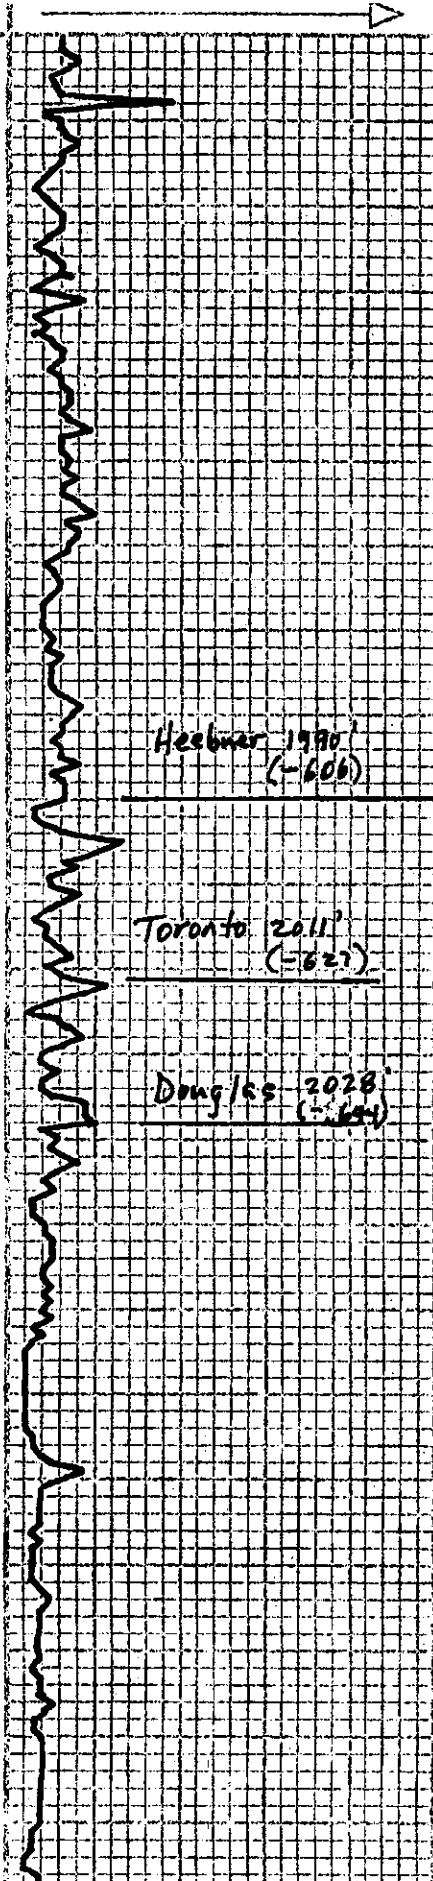 Heebner 1990'
(-606)
Toronto 2011'
(-627)
Douglas 2028'
(-644)